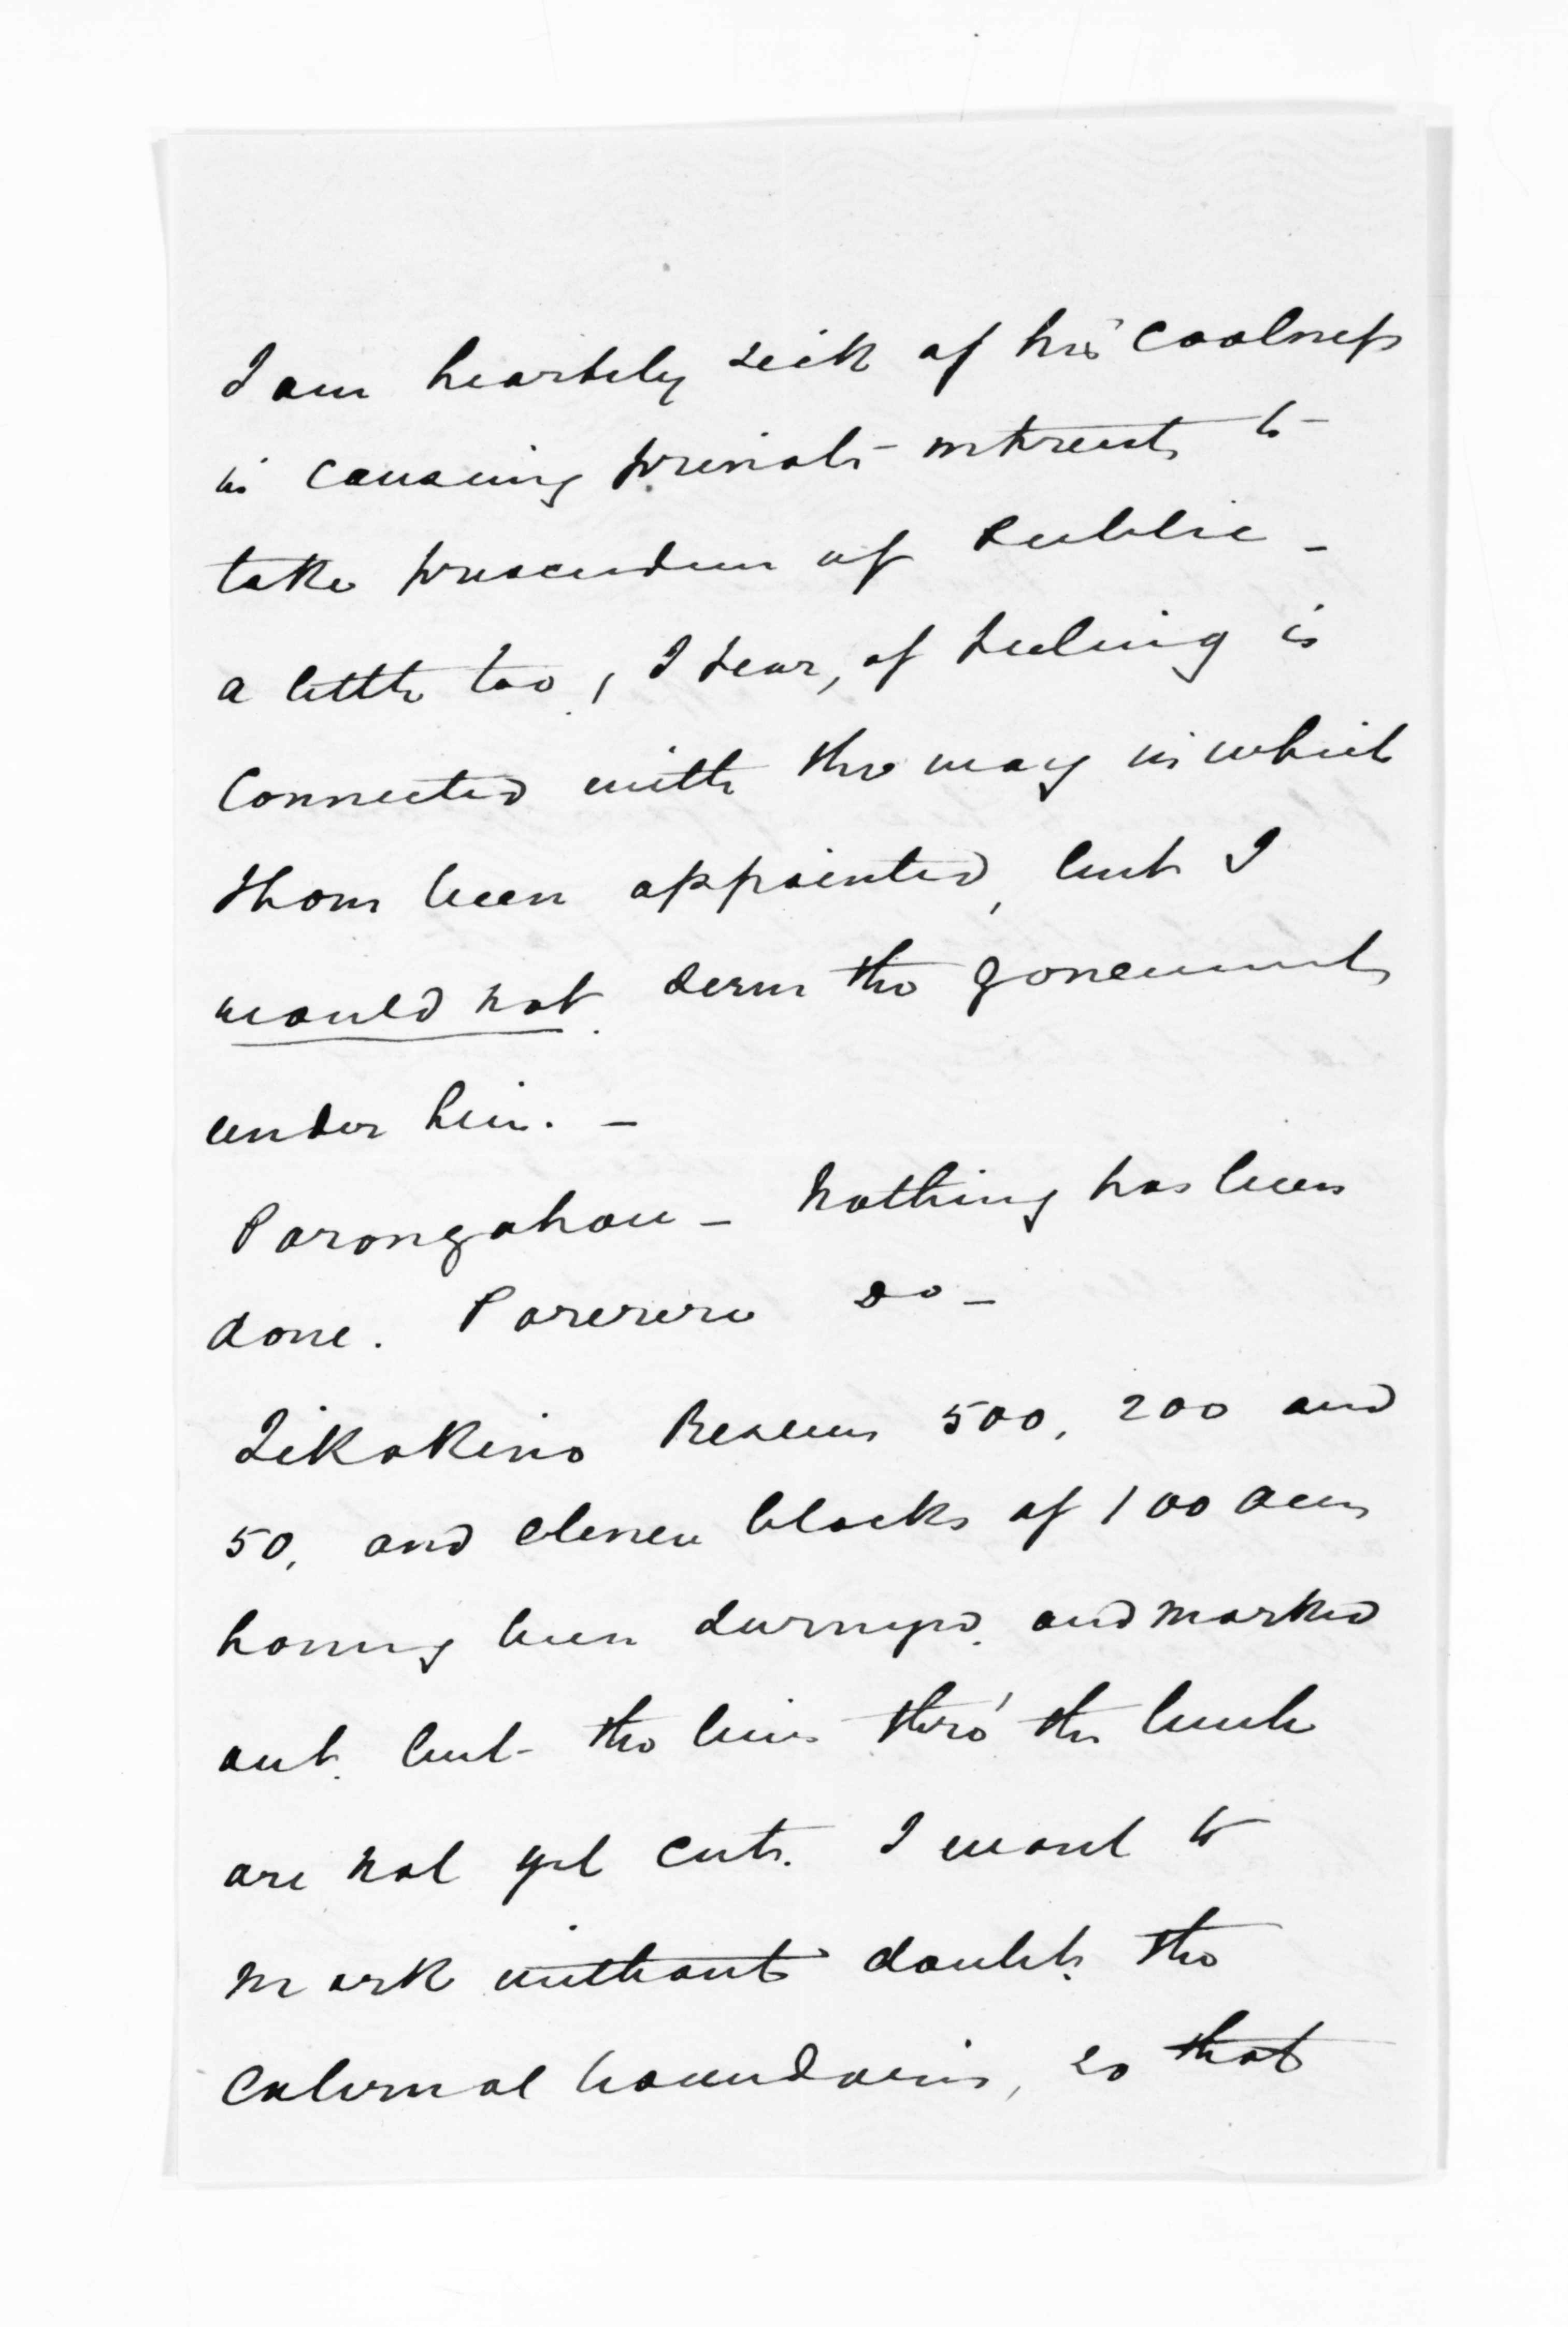 I am heartily sick of his coolness
in causing private interests to
take precedence of Public -
a little too, I fear, of feeling is
Connected with the way in which
I have been appointed, but I
would not serve the government
under him. -
Porongahau - Nothing has been
done. Parerere Do -
Tikokino Reserves 500, 200 and
50, and eleven blocks of 100 acres
having been surveyed and marked
out, but the lines thro' the bush
are not yet cut. I want to
mark without doubt the
external boundaries, so that